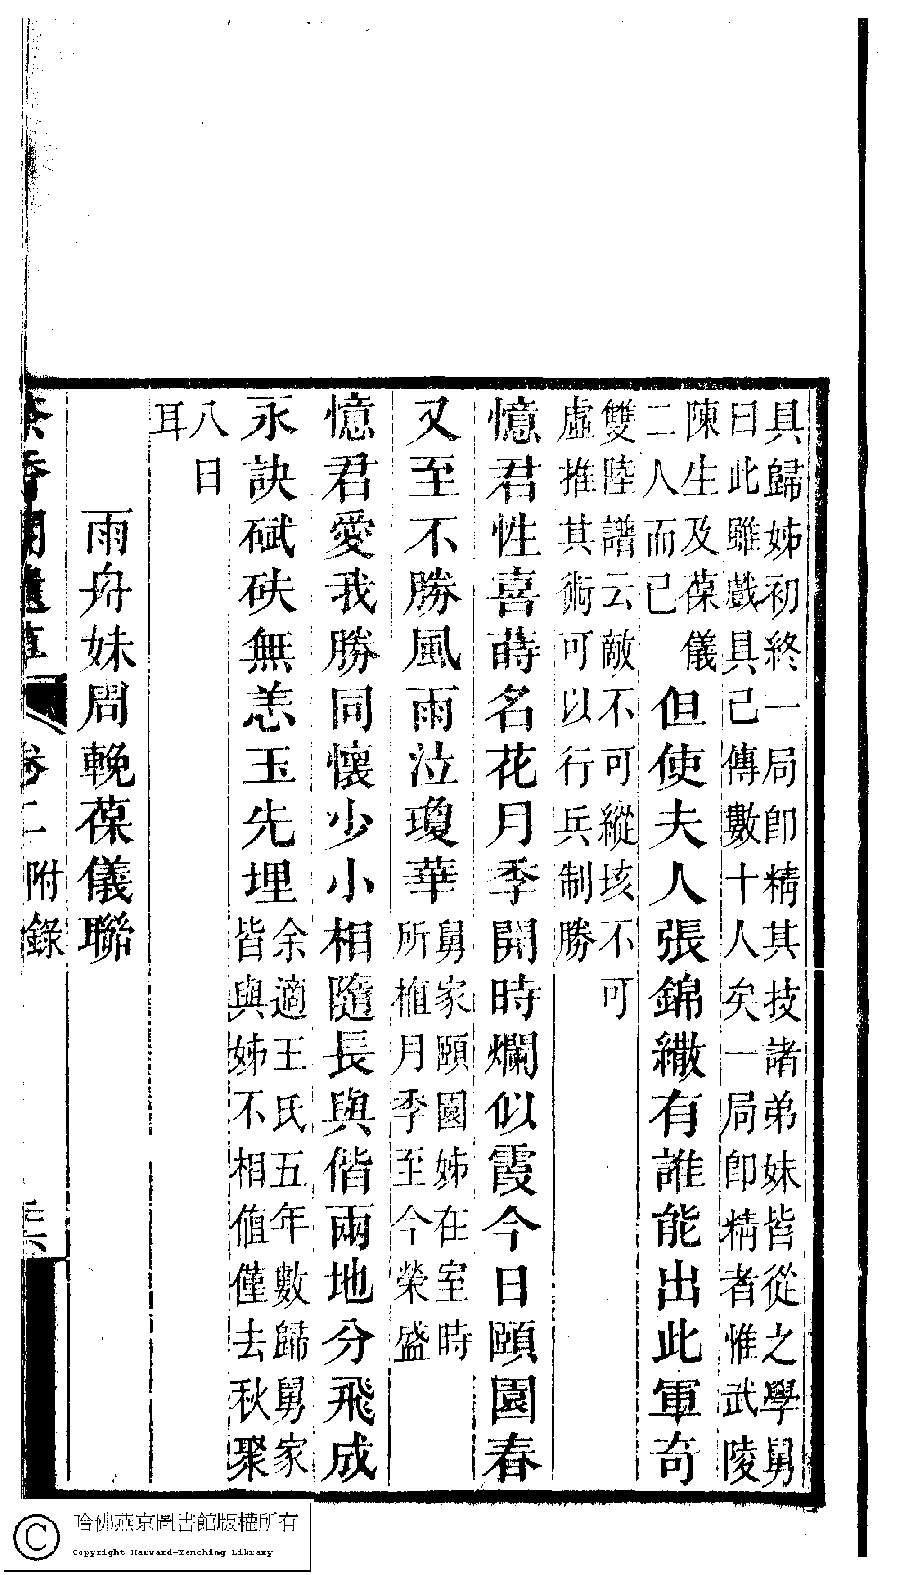 具歸姊初終一局卽精其技諸弟妹皆從之學舅
曰此雖戲具已傳數十人矣一局卽精者惟武陵
陳生及葆儀
二人而已
但使夫人張錦繖有誰能出此軍奇
雙陸譜云敵不可縱垓不可
虛推其術可以行兵制勝
憶君性喜蒔名花月季開時爛似霞今日頤園春
又至不勝風雨泣瓊華
舅家頤園姊在室時
所植月季至今榮盛
憶君愛我勝同懷少小相隨長與偕兩地分飛成
永訣碔砆無恙玉先埋
余適王氏五年數歸舅家
皆與姊不相值僅去秋聚
八日
耳
雨舟妹周輓葆儀聯
茶香閣遺草 卷二附錄
三六
哈佛燕京圖書館版權所有
Copyright Harvard-Yenching Library